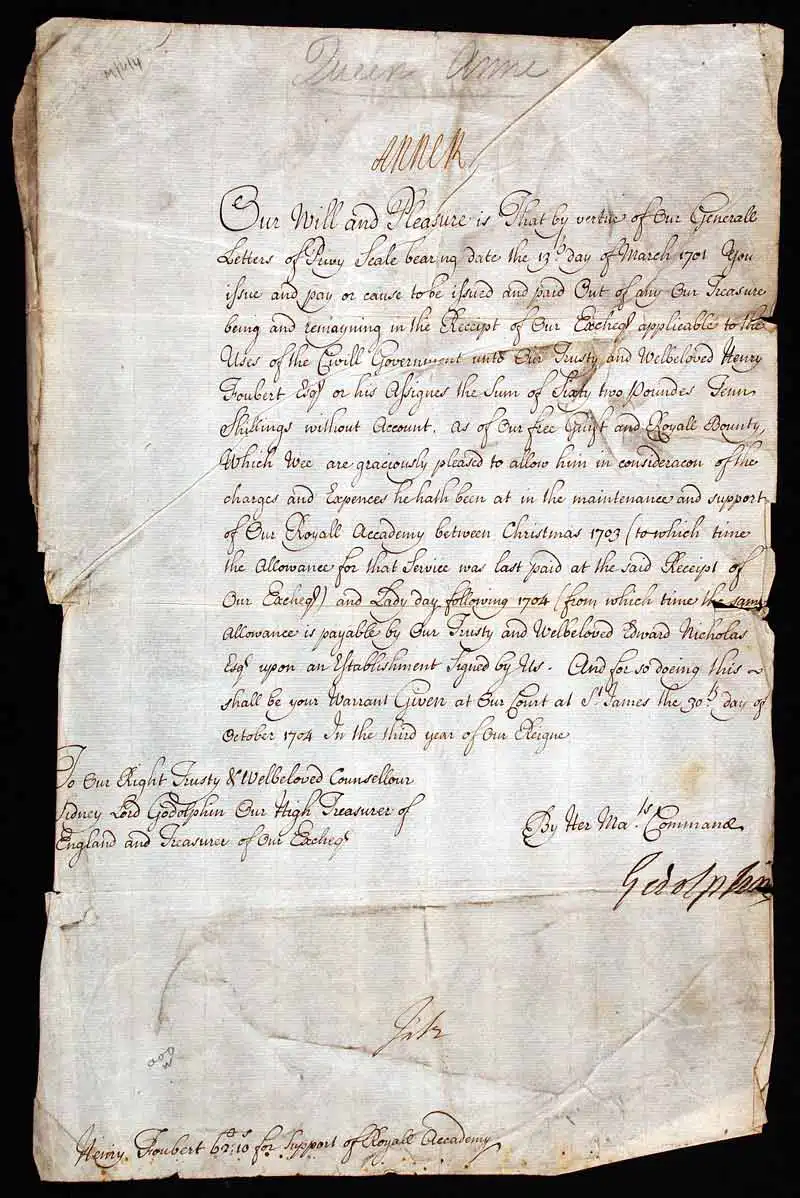 Queen Anne
ANNE R
Our Will and Pleasure is That by vertue of Our Generall
Letters of Privy Seale bearing date the 13th day of March 1701 You
issue and pay or cause to be issued and paid Out of any Our Treasure
being and remayning in the Receipt of Our Excheqr applicable to the
Uses of the Civill Government unto Our Trusty and Welbeloved Henry
Foubert Esqr or his Assignes the Sum of Sixty two Poundes Tenn
Shillings without Account. As of Our free Guift and Royall Bounty,
Which Wee are graciously pleased to allow him in consideracon of the
charges and Expences he hath been at in the maintenance and support
of Our Royall Accademy between Christmas 1703 (to which time
the Allowance for that Service was last paid at the said Receipt of
Our Excheqr) and Lady day following 1704 (from which time the same
Allowance is payable by Our Trusty and Welbeloved Edward Nicholas
Esqr upon an Establishment Signed by Us. And for so doeing this
shall be your Warrant Given at Our Court at St. James the 30th day of
October 1704 In the third year of Our Reigne
To Our Right Trusty & Welbeloved Counsellour
Sidney Lord Godolphin Our High Treasurer of
England and Treasurer of Our Excheqr
By Her Mats Command
Godolphin
Henry Foubert 62:10s for Support of Royall Accademy